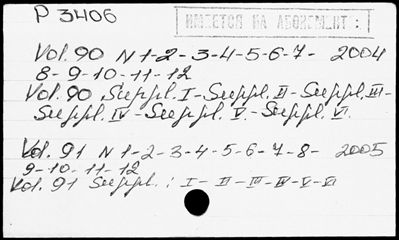 P 3406
ИМЕЕТСЯ НА АБОНЕМЕНТ:
Vol. 90 N 1-2-3-4-5-6-7- 2004
8-9-10-11-12
Vol. 90 Suppl. I-Suppl. II-Suppl. III-
Suppl. IV-Suppl. V-Suppl. VI.
Vol. 91 N 1-2-3-4-5-6-7-8- 2005
9-10-11-12
Vol. 91 Suppl.: I-II-III-IV-V-VI